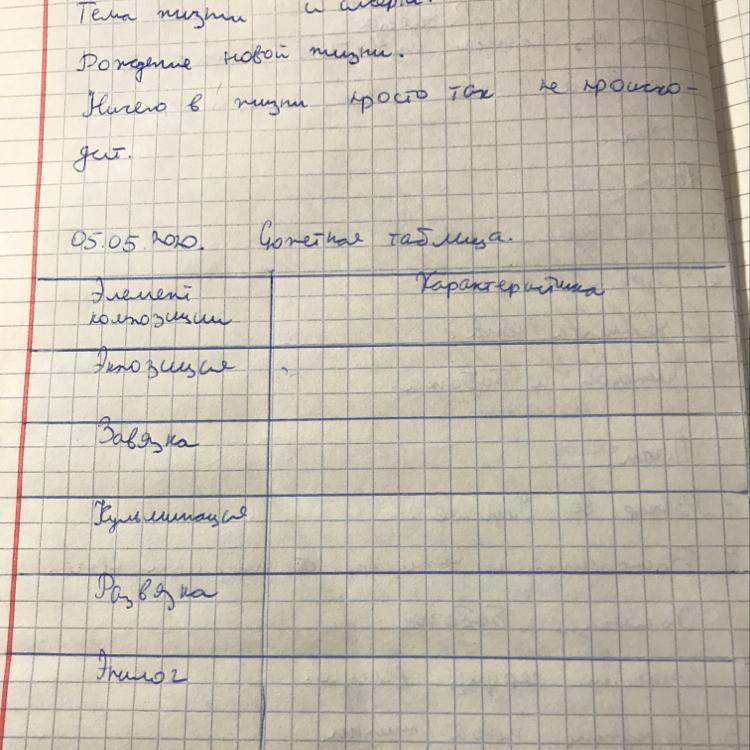 Тема жизни и смерти.
Рождение новой жизни.
Ничего в жизни просто так не происхо-
дит.
05.05.2020. Сюжетная таблица.
Элемент Характеристика
композиции
Экпозиция
Завязка
Кульминация
Развязка
Эпилог